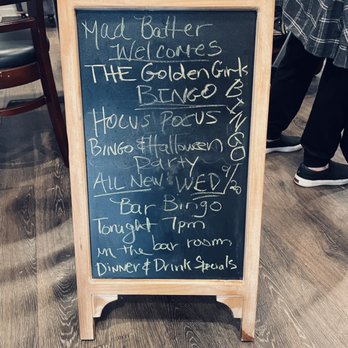 Mad Batter
Welcomes
THE Golden Girls
BINGO
Hocus Pocus
Bingo & Halloween
Party
ALL New WED 9/20
Bar Bingo
Tonight 7pm
in the bar room
Dinner & Drink Specials
BINGO